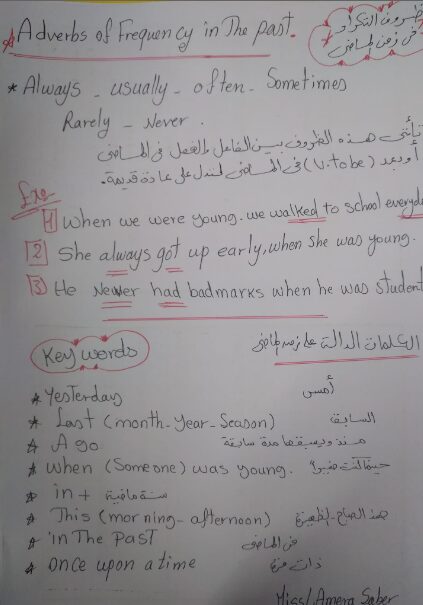 Adverbs of Frequency in The past.
ظروف التكرار
فى زمن الماضى
* Always - usually - often - Sometimes
Rarely - Never .
تأتى هذه الظروف بين الفاعل والفعل فى الماضى
أو بعد (v. to be) فى الماضى لتدل على عادة قديمة.
Exs
1 When we were young. we walked to school everyday
2 She always got up early, when she was young.
3 He Never had badmarks when he was student
Key words
الكلمات الدالة على زمن الماضى
* Yesterday أمس
* Last (month - Year - Season) السابق
* A go منذ ويسبقها مدة سابقة
* When (Someone) was young.
* in + سنة ماضية
* This (morning - afternoon) هذا الصباح - الظهيرة
* in The Past فى الماضى
* once upon a time ذات مرة
Miss/ Amera Saber